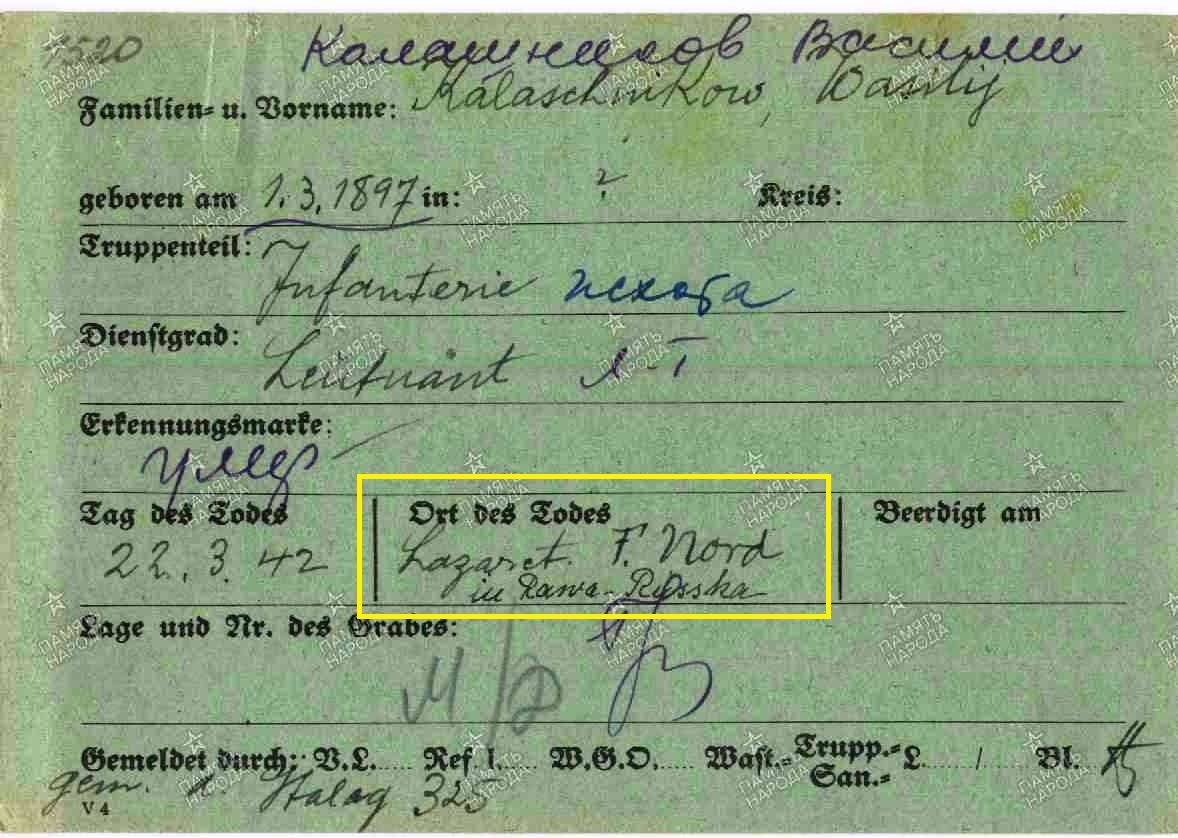 7520
Калашников Василий
Familien- u. Vorname: Kalaschnikow, Wasilij
geboren am 1.3.1897 in: ? Kreis:
Truppenteil: Infanterie пехота
Dienstgrad: Leutnant л-т
Erkennungsmarke:
умер
Tag des Todes Ort des Todes Beerdigt am
22.3.42 Lazaret. F. Nord
in Rawa-Russka
Lage und Nr. des Grabes:
Gemeldet durch: V.L..... Ref l..... W.G.O..... Wast.- Trupp.-
San.- L..... / Bl.
gem. d. Stalag 325
V 4
ПАМЯТЬ НАРОДА